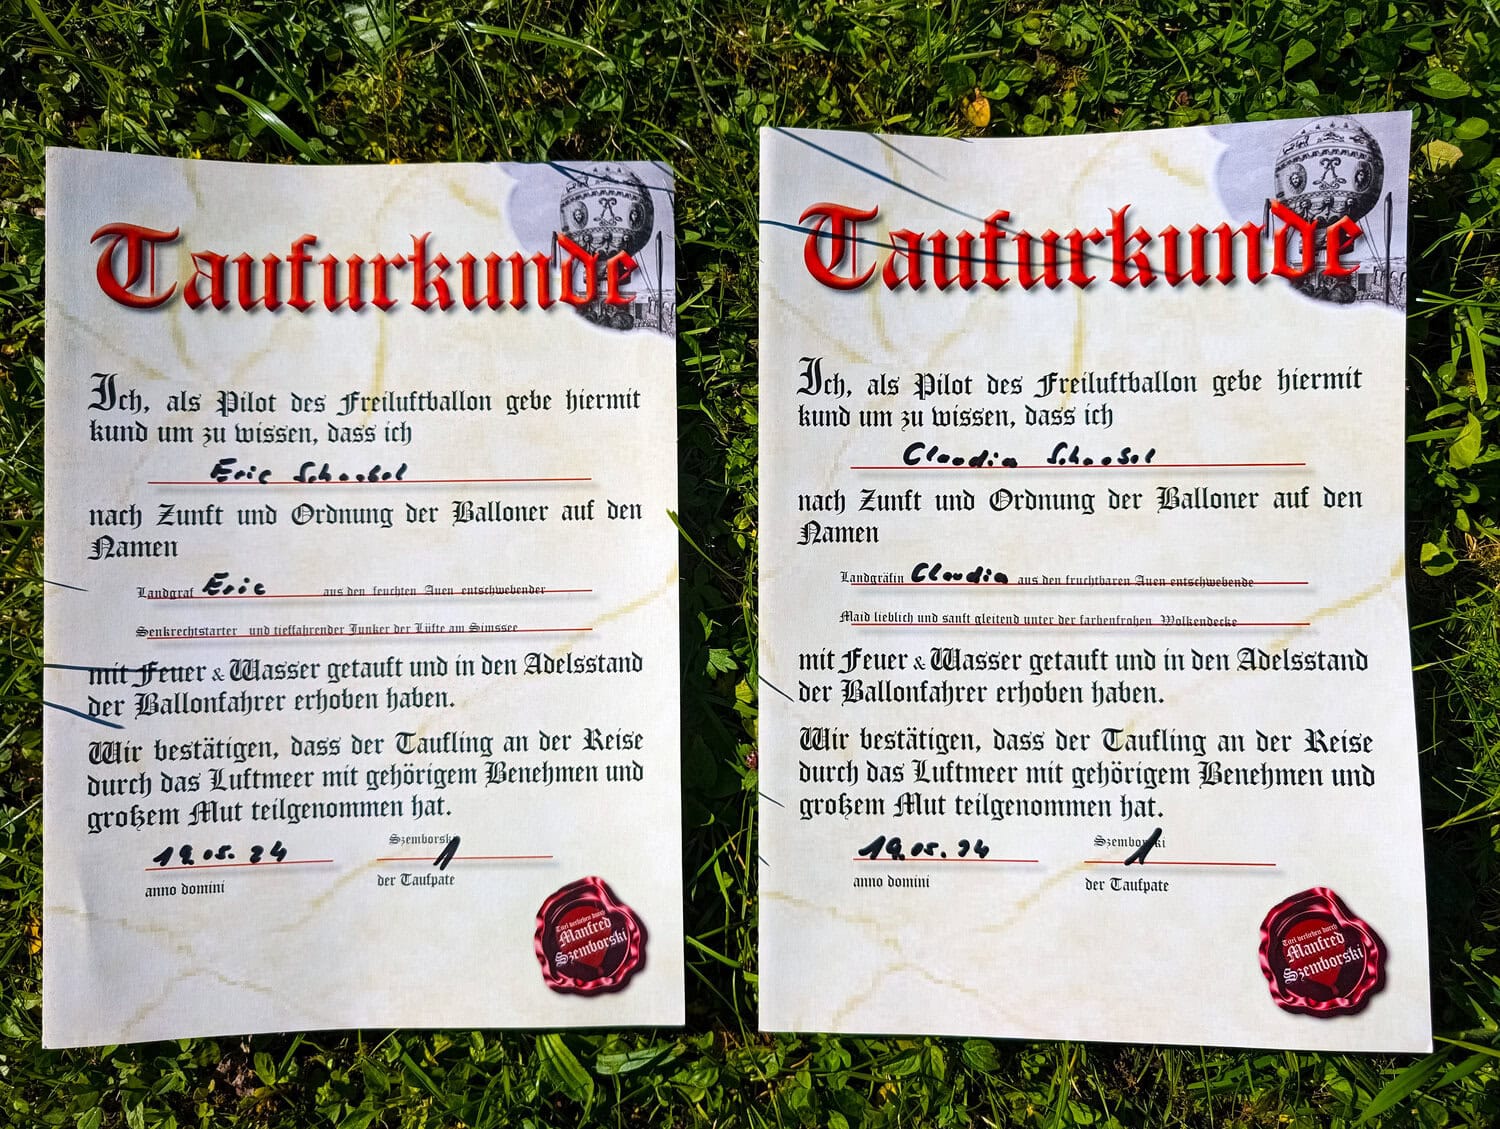 Taufurkunde
Ich, als Pilot des Freiluftballon gebe hiermit
kund um zu wissen, dass ich
Eric
nach Zunft und Ordnung der Balloner auf den
Namen
Landgraf Eric aus den feuchten Auen entschwebender
Senkrechtstarter und tieffahrender Junker der Lüfte am Simssee
mit Feuer & Wasser getauft und in den Adelsstand
der Ballonfahrer erhoben haben.
Wir bestätigen, dass der Taufling an der Reise
durch das Luftmeer mit gehörigem Benehmen und
großem Mut teilgenommen hat.
Szemborski
19.05.24
anno domini der Taufpate
Titel verliehen durch
Manfred
Szemborski
Taufurkunde
Ich, als Pilot des Freiluftballon gebe hiermit
kund um zu wissen, dass ich
Claudia
nach Zunft und Ordnung der Balloner auf den
Namen
Landgräfin Claudia aus den fruchtbaren Auen entschwebende
Maid lieblich und sanft gleitend unter der farbenfrohen Wolkendecke
mit Feuer & Wasser getauft und in den Adelsstand
der Ballonfahrer erhoben haben.
Wir bestätigen, dass der Taufling an der Reise
durch das Luftmeer mit gehörigem Benehmen und
großem Mut teilgenommen hat.
Szemborski
19.05.24
anno domini der Taufpate
Titel verliehen durch
Manfred
Szemborski